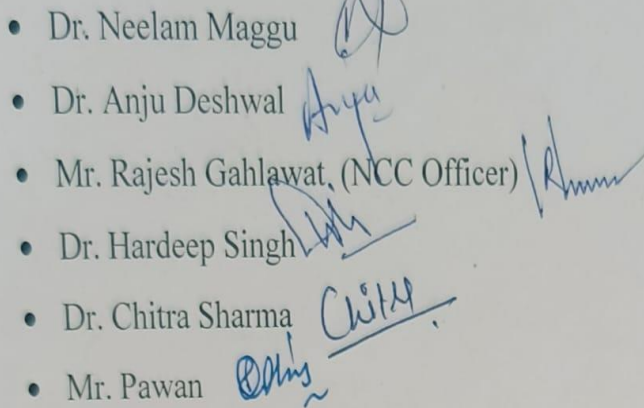 • Dr. Neelam Maggu
• Dr. Anju Deshwal Anju
• Mr. Rajesh Gahlawat, (NCC Officer)
• Dr. Hardeep Singh
• Dr. Chitra Sharma Chitra
• Mr. Pawan